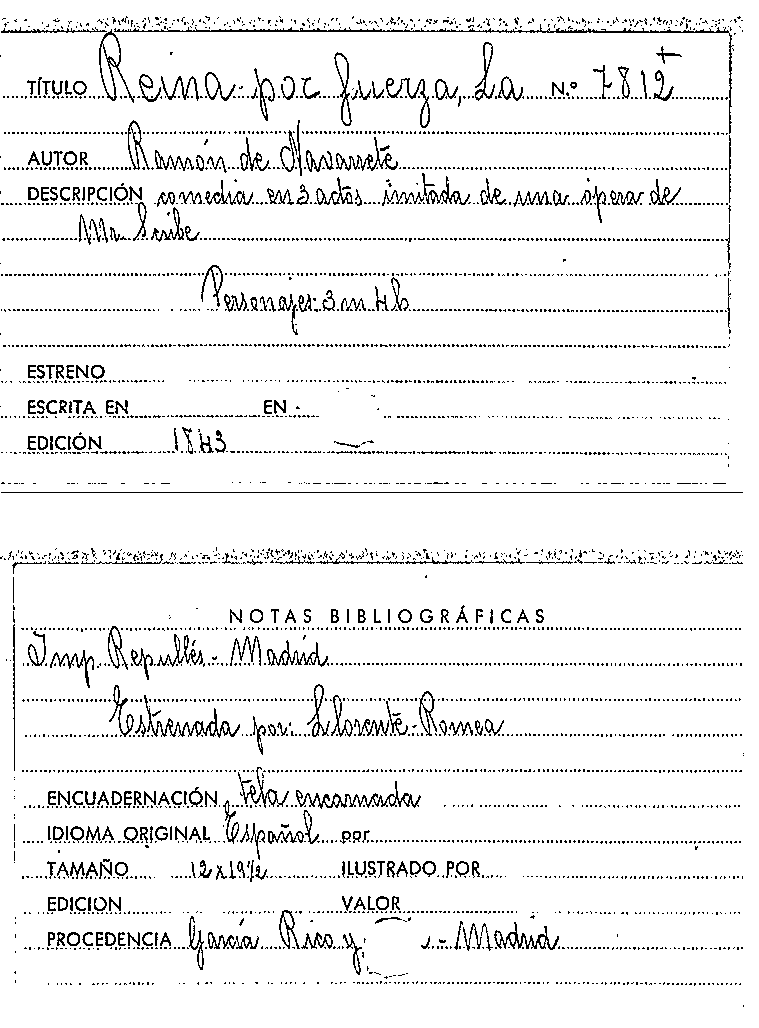 TÍTULO Reina por fuerza, La N.º 7812
AUTOR Ramón de Navarrete
DESCRIPCIÓN comedia en 3 actos imitada de una ópera de
Mr. Scribe
Personajes: 3 m 4 h
ESTRENO
ESCRITA EN EN
EDICIÓN 1843
NOTAS BIBLIOGRÁFICAS
Imp. Repullés - Madrid
Estrenada por: Llorente - Romea
ENCUADERNACIÓN tela encarnada
IDIOMA ORIGINAL Español por
TAMAÑO 12 x 19 1/2 ILUSTRADO POR
EDICION VALOR
PROCEDENCIA García Rico y - Madrid